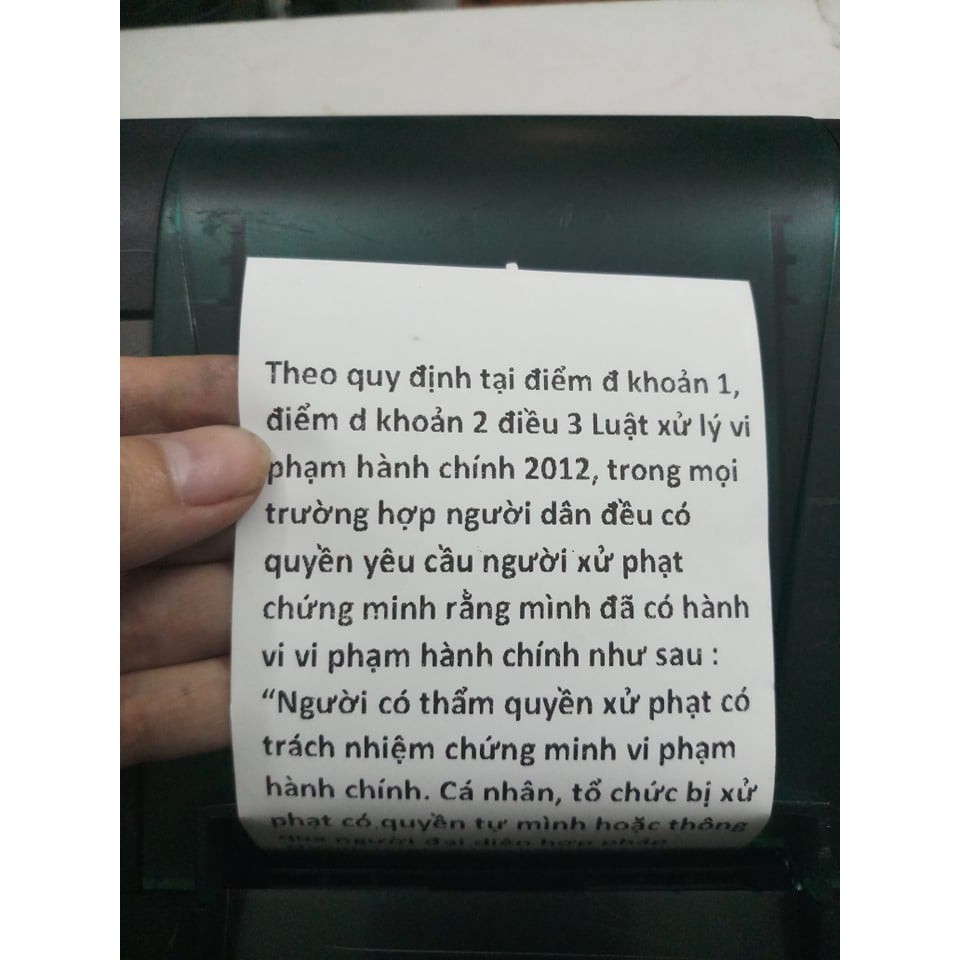 Theo quy định tại điểm đ khoản 1,
điểm d khoản 2 điều 3 Luật xử lý vi
phạm hành chính 2012, trong mọi
trường hợp người dân đều có
quyền yêu cầu người xử phạt
chứng minh rằng mình đã có hành
vi vi phạm hành chính như sau :
“Người có thẩm quyền xử phạt có
trách nhiệm chứng minh vi phạm
hành chính. Cá nhân, tổ chức bị xử
phạt có quyền tự mình hoặc thông
qua người đại diện hợp pháp